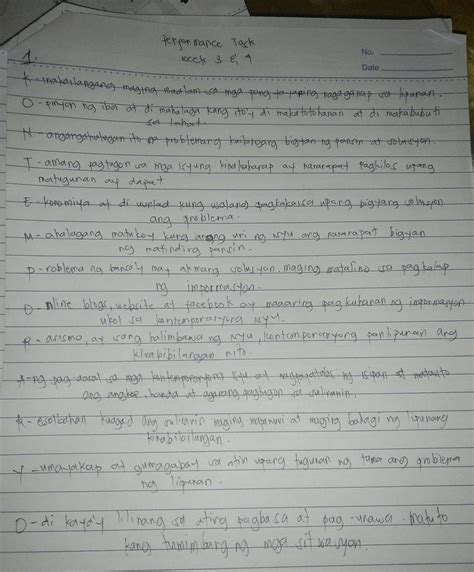 Performance Task
No.
week 3 & 4
Date
1.
K - inakailangang maging maalam sa mga pang ta-japing nagagarap sa lipunan.
O - pinyon ng iba at di mahalaga kung ito'y di makatotohanan at di makabubuti
sa lahat.
N - angangahulugan ito na problemang kailangang bigyan ng pansin at solusyon.
T - amang pagtugon sa mga isyung kinakaharap ay nararapat pagkilos upang
matugunan ay dapat
E - konomiya at di uunlad kung walang pagkakaisa upang bigyang solusyon
ang problema.
M - ahalagang matukoy kung anong uri ng isyu ang nararapat bigyan
ng matinding pansin.
P - roblema ng bansa'y may akmang solusyon, maging matalino sa pagkalap
ng impormasyon.
O - nline blogs, website at facebook ay maaaring pagkuhanan ng impormasyon
ukol sa kontemporaryong isyu.
R - asismo, ay isang halimbawa ng isyu, kontemporaryong panlipunan ang
kinabibilangan nito.
A - ng pag-aaral sa mga kontemporaryong isyu at nagpapatalas ng isipan at matanto
ang angkop, handa at agarang pagtugon sa suliranin.
R - esolbahan kaagad ang suliranin maging mapanuri at maging bahagi ng lipunang
kinabibilangan.
Y - umayakap at gumagabay sa atin upang tugunan ng tama ang problema
ng lipunan.
O - di kaya'y lilinang sa ating pagbasa at pag-unawa. Matuto
kang tumimbang ng mga sitwasyon.